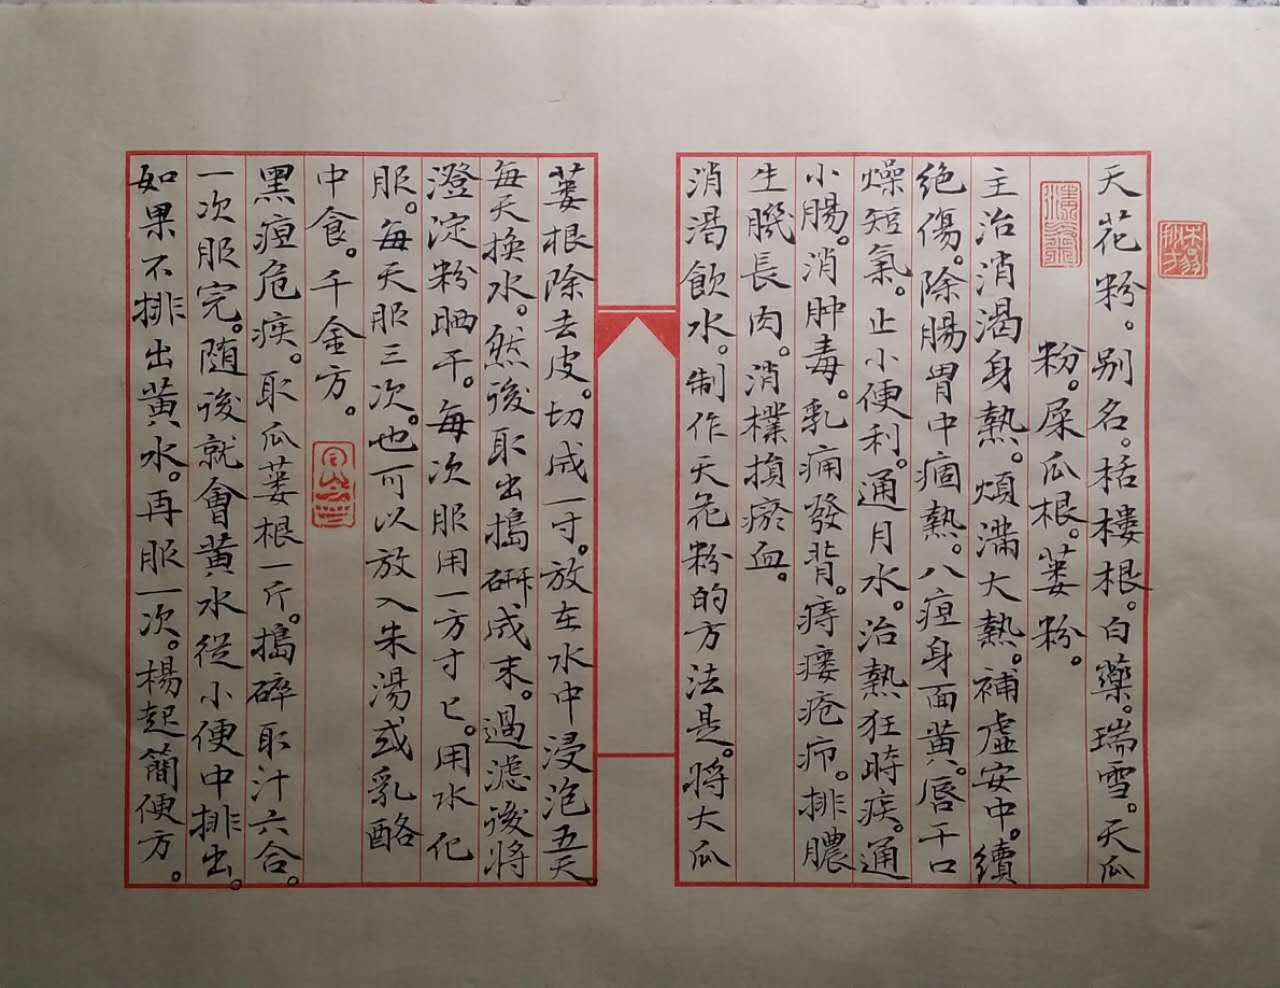 天花粉。别名。栝樓根。白藥。瑞雪。天瓜
粉。屎瓜根。蒌粉。
主治消渴身熱。煩滿大熱。補虛安中。續
绝傷。除腸胃中痼熱。八疸身面黄。唇干口
燥短氣。止小便利。通月水。治熱狂時疾。通
小腸。消肿毒。乳痈發背。痔瘻疮疖。排膿
生肌長肉。消撲損瘀血。
消渴飲水。制作天花粉的方法是。將大瓜
蒌根除去皮。切成一寸。放在水中浸泡五天。
每天換水。然後取出搗研成末。過滤後將
澄淀粉晒干。每次服用一方寸匕。用水化
服。每天服三次。也可以放入朱湯或乳酪
中食。千金方。
黑疸危疾。取瓜蒌根一斤。搗碎取汁六合。
一次服完。随後就會黄水從小便中排出。
如果不排出黄水。再服一次。楊起簡便方。